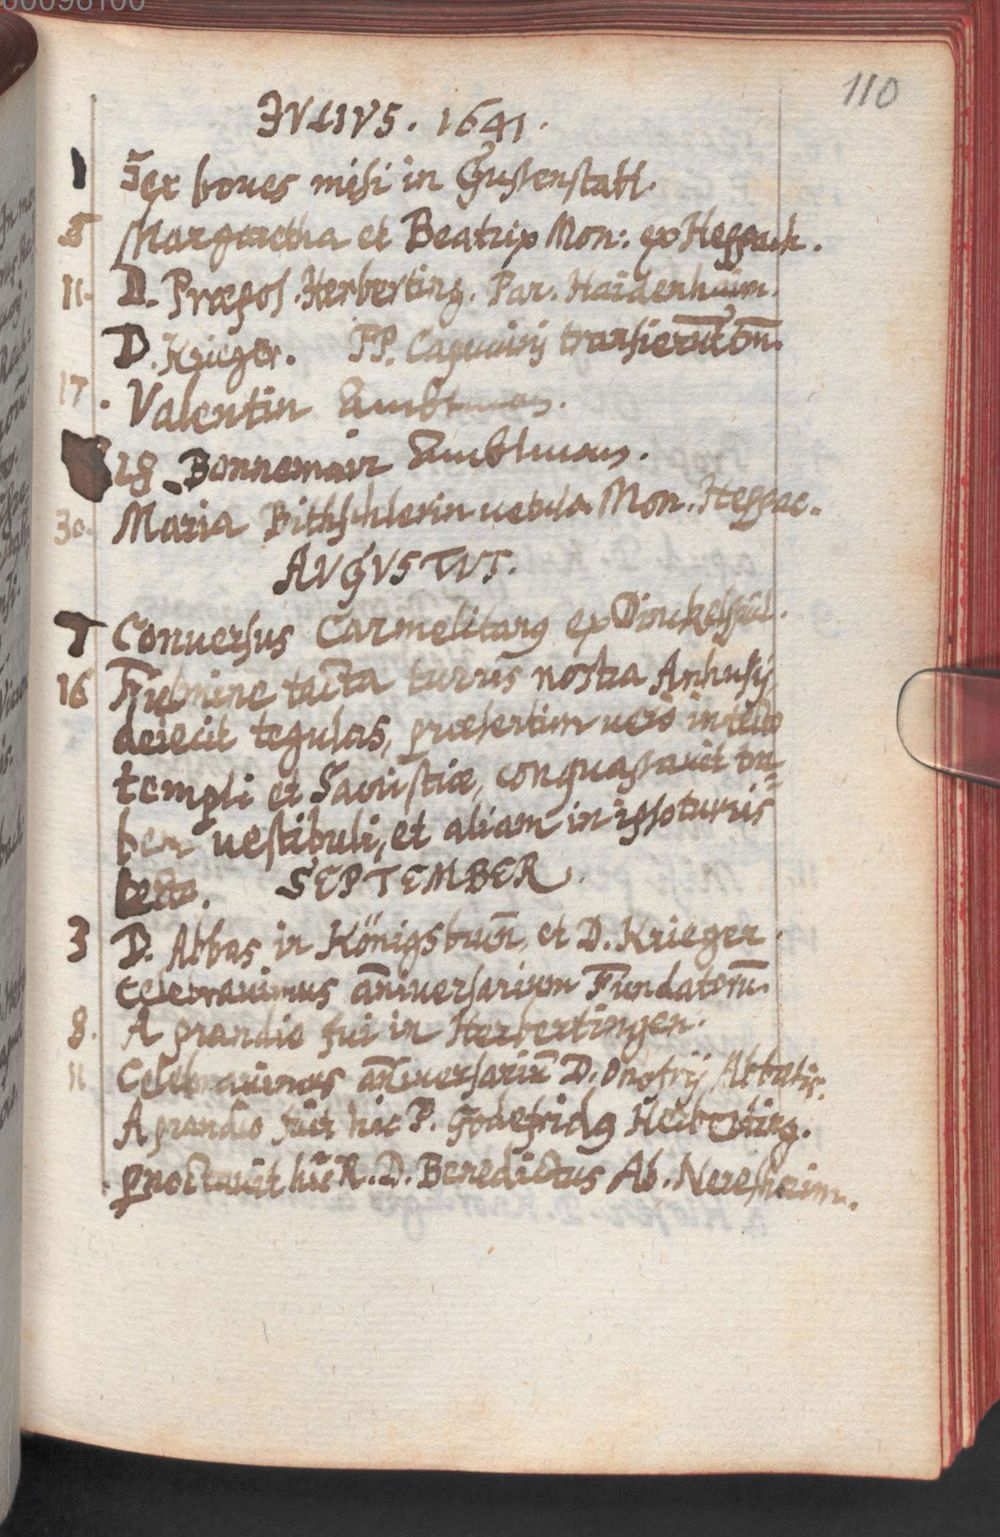 00098100
110
IVLIVS. 1641.
1 Sex boues misi in Gussenstatt.
8 Margaretha et Beatrix Mon: ex Heggach.
11. D. Præpos. Herberting. Par. Haidenhaim.
D. Krieger. PP. Capucinj transierunt
17. Valentin
28 Bonnemair
30. Maria Mon. Heggac.
AVGVSTVS.
7 Conuersus Carmelitarū ex Dinckelspül.
16 Fulmine tacta turris nostra Anhusij
deiecit tegulas, præsertim uero in tecto
templi et Sacristiæ, conquassauit tra=
bem uestibuli, et aliam in ipso turris
tecto. SEPTEMBER.
3 D. Abbas in Königsbruñ, et D. Krieger.
celebrauimus añiuersarium Fundatorū.
8. A prandio fui in Herbertingen.
11 Celebrauimus añiuersariū D. Onofrij Abbatis.
A prandio fuit hic P. Godefridus Herberting.
pnoctauit hic R. D. Benedictus Ab. Neresheim.